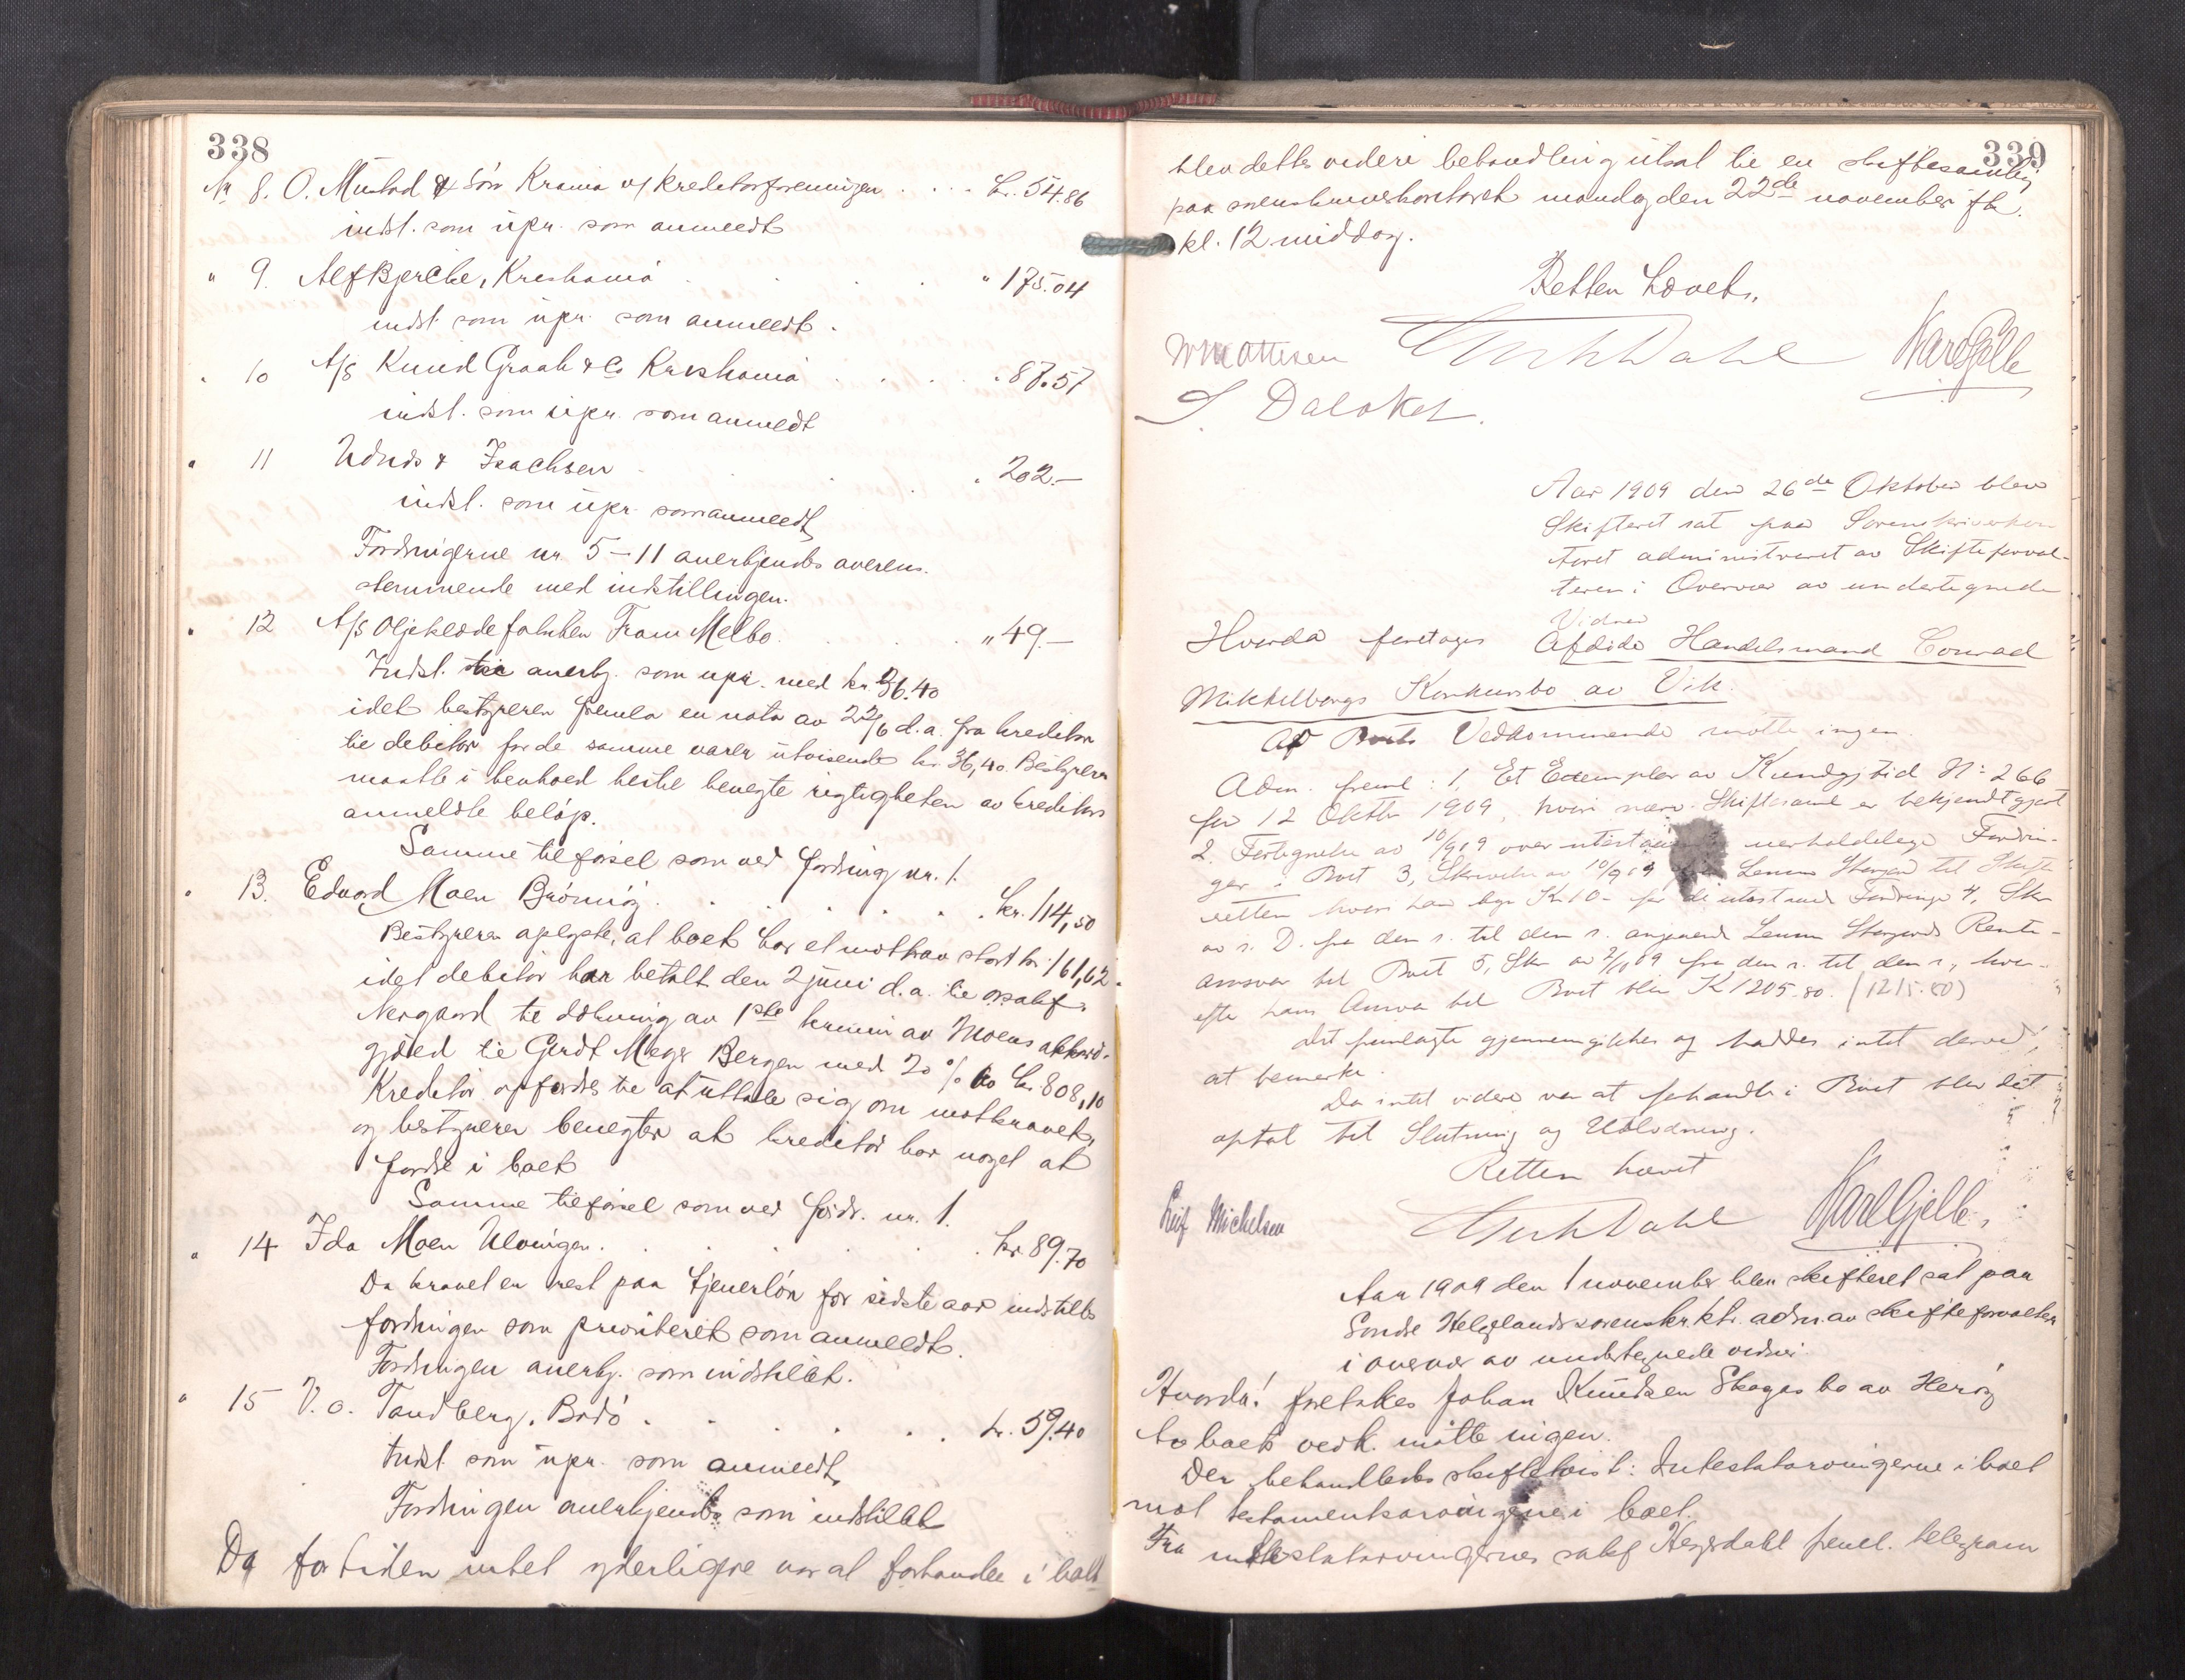 338
Nr 8. O. Mustad & Søn Krania v/ Kreditorforeningen . . . . kr. 54.86
indst. som upr. som anmeldt
" 9. Alf Bjercke, Kristiania . . . " 175.04
indst. som upr. som anmeldt.
" 10 A/S Knud Graah & Co Kristiania . . . . " 87.57
indst. som upr. som anmeldt
" 11 Udnæs & Isachsen . . . " 202.–
indst. som upr. som anmeldt
Fordringerne nr. 5–11 anerkjendes överens.
stemmende med indstillingen.
" 12 A/S Oljeklædefabriken Fram Melbo . . . " 49.–
Indst. til anerkj. som upr. med kr. 36.40
idet bestyreren fremla en nota av 22/6 d.a. fra kreditor
til debitor for de samme varer utvisende kr. 36,40. Bestyreren
maatte i henhold hertil benegte rigtigheten av kreditors
anmeldte beløp.
Samme tilførsel som ved fordring nr. 1.
" 13. Edvard Moen Brønnøy . . . . . kr. 114,50
Bestyreren oplyste, at boet har et motkrav stort kr. 161,62
idet debitor har betalt den 2 juni d.a. til o.r.sakf.
Nergaard til dækning av 1ste termin av Moens akkord-
gjæld til Gerdt Meyer Bergen med 20 % av kr. 808,10
Kreditor opfordres til at uttale sig om motkravet,
og bestyreren benegter at kreditor har noget at
fordre i boet
Samme tilførsel som ved fordr. nr. 1.
" 14 Ida Moen Ulvingen . . . . . kr. 89.70
Da kravet er rest paa tjenerløn for sidste aar indstilles
fordringen som prioriteret som anmeldt.
Fordringen anerkj. som indstillet.
" 15 V. o. Tandberg, Bodø . . . . . kr. 59.40
Indst. som upr. som anmeldt
Fordringen anerkjendes som indstillet
Da for tiden intet yderligere var at forhandle i boet
339
blev dets videre behandling utsat til en skiftesamling
paa sorenskriverkontoret mandag den 22de november fk.
kl. 12 middag.
Retten hævet.
W Mattisen Erik Dahl Karl Gjelle
S. Dalaker
Aar 1909 den 26de Oktober blev
Skifteret sat paa Sorenskriverkon
toret administreret av Skifteforval-
teren i Overvær av undertegnede
Vidner
Hvorda foretoges Afdøde Handelsmand Conrad
Mikkelborgs Konkursbo av Vik.
Af Boets Vedkommende møtte ingen.
Adm. freml: 1, Et Exemplar av Kundgj.tid No 266
for 12 Oktbr 1909, hvori nærv. Skiftesaml er bekjendtgjort
2. Fortegnelse av 10/9 09 over utestaaende uerholdelige Fordrin-
ger i Boet 3, Skrivelse av 10/9 09 fra Lensm til Skifte
retten hvori han byr Kr 10– for de utestaaende Fordringer 4, Skr
av s. D. fra den s. til den s. angaaende Lensm Rente-
ansvar til Boet 5, Skr av 2/10 09 fra den s. til den s., hvor-
efter hans Ansva til Boet blir K 1205.80. (1215.80)
det fremlagte gjennemgikkes og haddes intet derved
at bemerke.
Da intet videre var at forhandle i Boet blev det
optat til Slutning og Utlodning.
Retten hævet
Leif Michelsen Erik Dahl Karl Gjelle,
Aar 1909 den 1 november blev skifteret sat paa
Søndre Helgelands sorenskr.ktr. adm. av skifteforvalteren
i overvær av undertegnede vidner.
Hvorda! foretokes Johan Knudsen Skogas bo av Herøy
Av boets vedk. møtte ingen.
Der behandledes skiftetvist: Intestatarvingerne i boet
mot testamentsarvingene i boet.
Fra intestatarvingernes sakf Heyerdahl freml. telegram